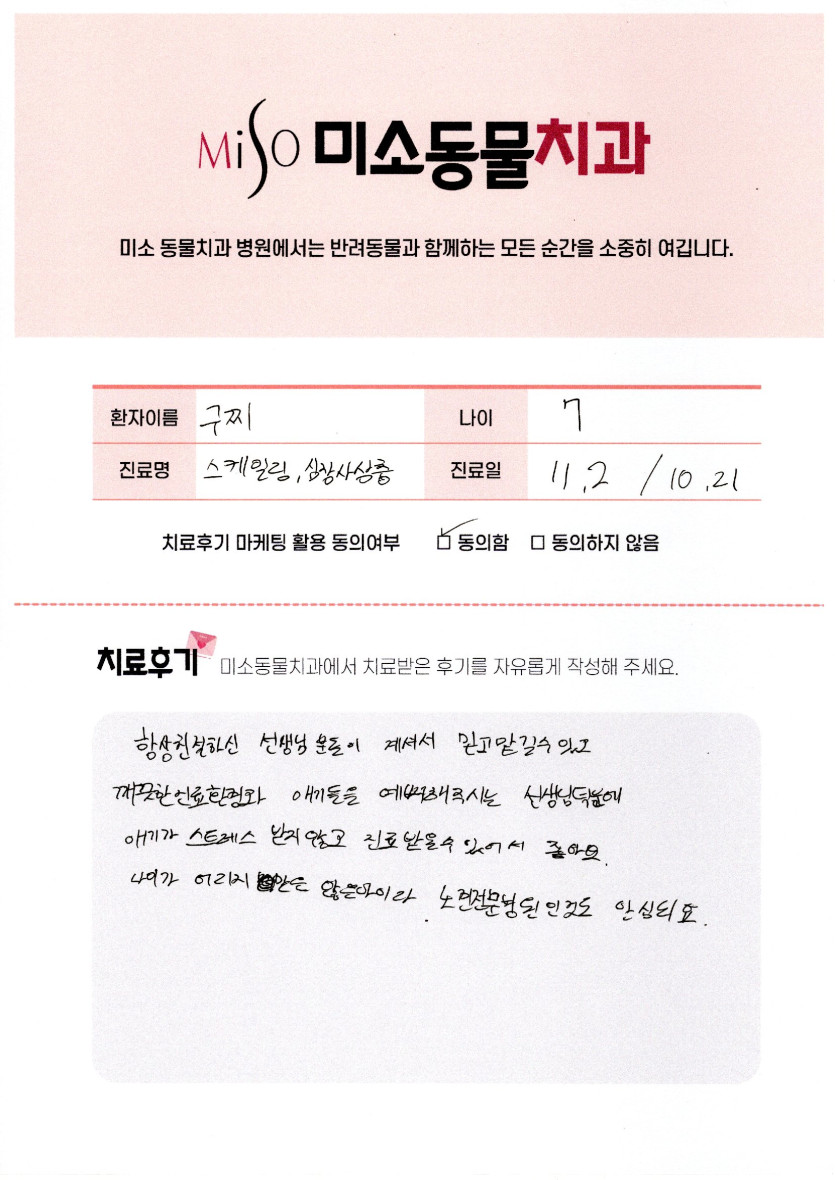 MiSO 미소동물치과
미소 동물치과 병원에서는 반려동물과 함께하는 모든 순간을 소중히 여깁니다.
환자이름 구찌 나이 7
진료명 스케일링, 심장사상충 진료일 11.2 / 10.21
치료후기 마케팅 활용 동의여부 ☑ 동의함 □ 동의하지 않음
치료후기 미소동물치과에서 치료받은 후기를 자유롭게 작성해 주세요.
항상친절하신 선생님 분들이 계셔서 믿고맡길수 있고
깨끗한진료환경과 애기들을 예뻐해주시는 선생님덕분에
애기가 스트레스 받지않고 진료받을수 있어서 좋아요.
나이가 어리지만은 않은아이라. 노견전문병원인것도 안심되요.